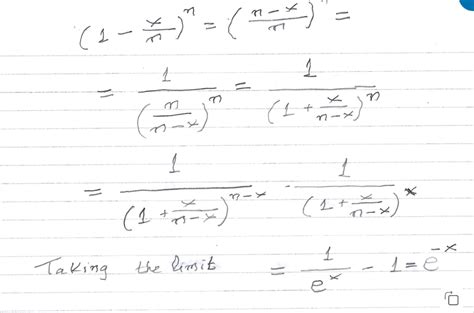 (1 - x/n)^n = ((n-x)/n)^n =
= 1/(n/(n-x))^n = 1/(1 + x/(n-x))^n
= 1/(1 + x/(n-x))^(n-x) · 1/(1 + x/(n-x))^x
Taking the limit = 1/e^x - 1 = e^-x
□